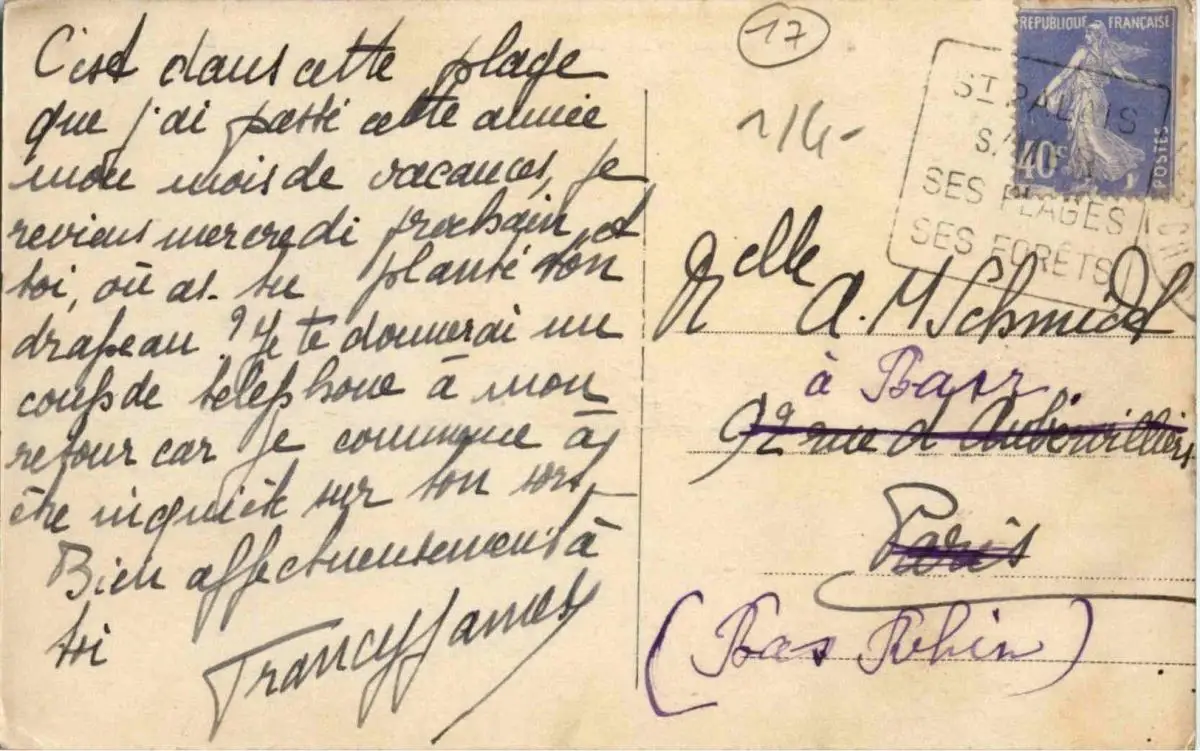 C'est dans cette plage
que j'ai passé cette année
mon mois de vacances, je
reviens mercredi prochain et
toi, où as-tu planté ton
drapeau ? Je te donnerai un
coup de téléphone à mon
retour car je commence à
être inquiète sur ton sort,
Bien affectueusement à
toi
Francy James
17
1/4-
RÉPUBLIQUE FRANÇAISE
40c
POSTES
ST PALAIS
S/
SES PLAGES
SES FORÊTS
Melle
A. M Schmidt
à Barr
92 rue d'Aubervilliers
Paris
(Bas Rhin)